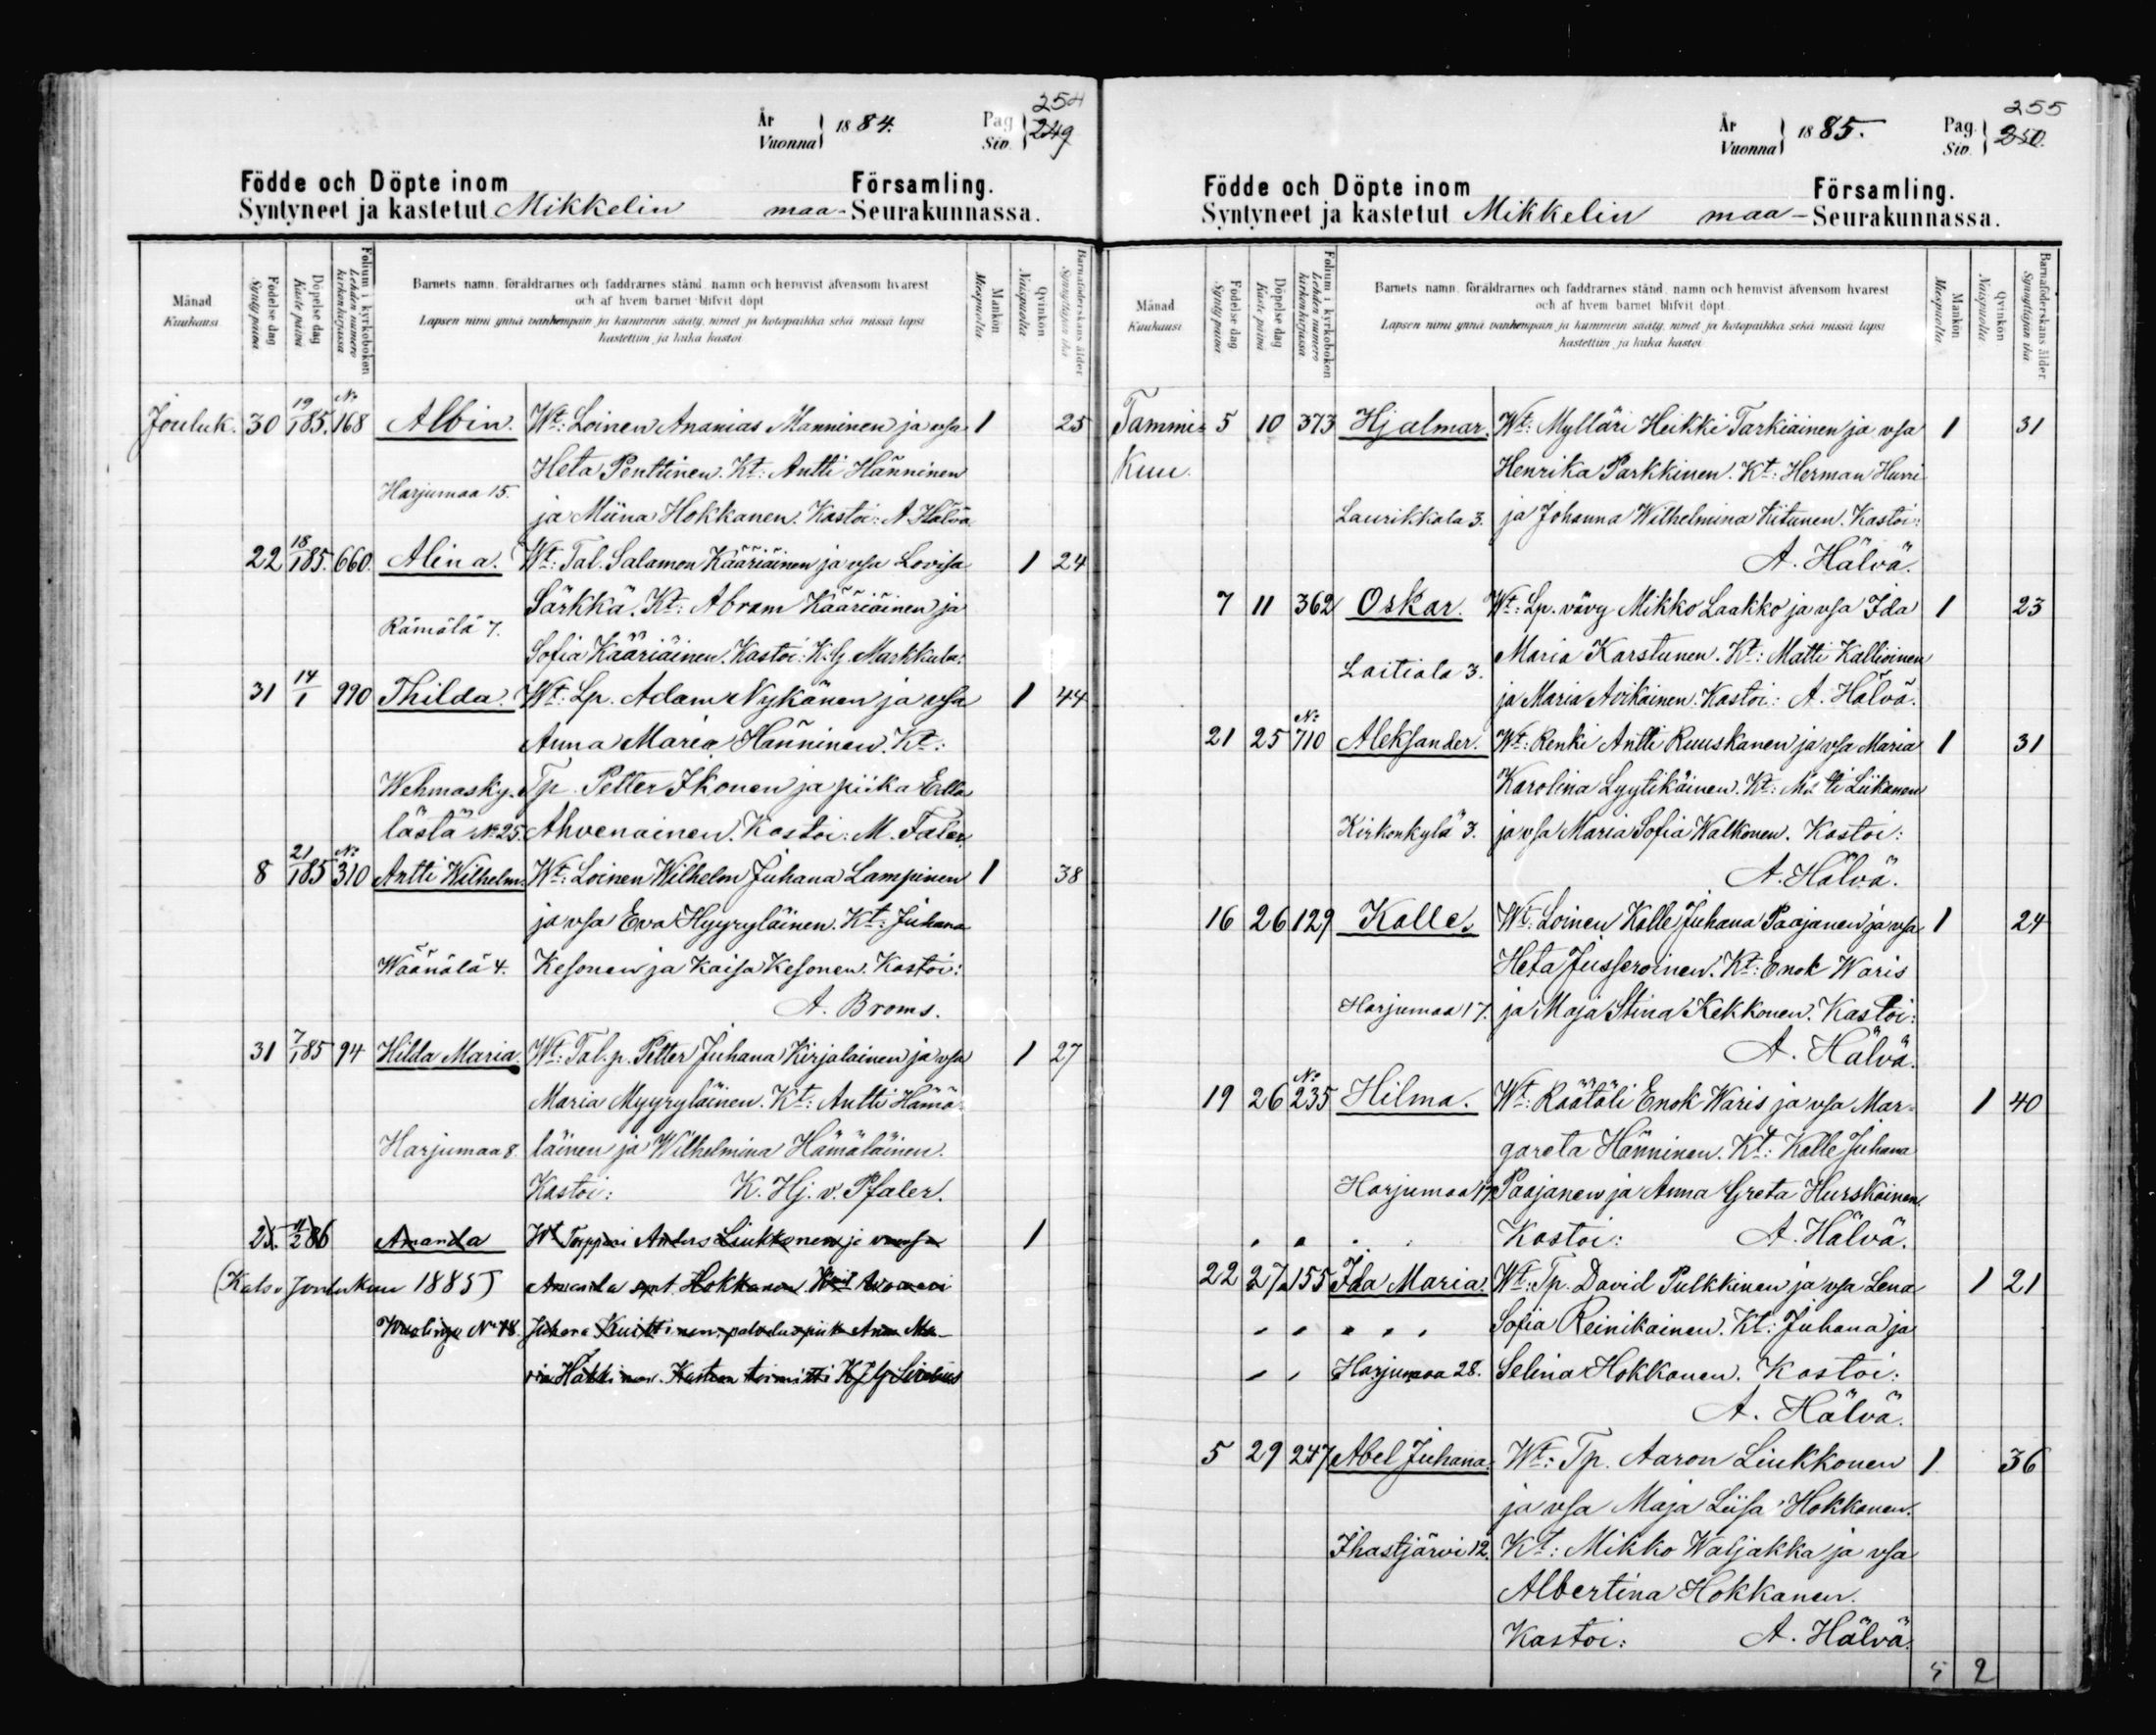 År
Vuonna
1884.
Pag
Siv.
254
249
Födde och Döpte inom Församling.
Syntyneet ja kastetut Mikkelin maa-Seurakunnassa.
Månad
Kuukausi
Födelse dag
Synty päivä
Döpelse dag
Kaste päivä
Folium i kyrkoboken
Lehden numero kirkonkirjassa
Barnets namn, föräldrarnes och faddrarnes stånd, namn och hemvist äfvensom hvarest
och af hvem barnet blifvit döpt
Lapsen nimi ynnä vanhempain ja kummein sääty, nimet ja kotopaikka sekä missä lapsi
kastettiin ja kuka kastoi
Mankön
Miespuolta
Qvinkön
Naispuolta
Barnaföderskans ålder
Synnyttäjän ikä
Jouluk. 30 19/1 85. No 168 Albin. Wt: Loinen Ananias Manninen ja vsa 1 25
Heta Penttinen. Kt: Antti Hänninen
Harjumaa 15.
ja Miina Hokkanen. Kastoi: A. Hälvä
22 18/1 85. 660. Alina. Wt: Tal. Salamon Kääriäinen ja vsa Lovisa 1 24
Särkkä. Kt: Abram Kääriäinen ja
Rämälä 7.
Sofia Kääriäinen. Kastoi: K. G. Markkula.
31 14/1 990 Thilda. Wt: Lp. Adam Nykänen ja vsa 1 44
Anna Maria Hänninen. Kt:
Wehmasky- Tp. Petter Ikonen ja piika Ella
lästä No 25. Ahvenainen. Kastoi: M. Faler.
8 21/1 85 No 310 Antti Wilhelm. Wt: Loinen Wilhelm Juhana Lampinen 1 38
ja vsa Eva Hyyryläinen. Kt: Juhana
Wäänälä 4. Kesonen ja Kaisa Kesonen. Kastoi:
A. Broms.
31 7/1 85 94 Hilda Maria. Wt: Tal. p. Petter Juhana Kirjalainen ja vsa 1 27
Maria Myyryläinen. Kt: Antti Hämä-
Harjumaa 8. läinen ja Wilhelmina Hämäläinen.
Kastoi: K. Hj. v. Pfaler.
25. 4/2 86 Amanda Wt Torppari Anders Liukkonen ja vaimsa 1
(Kats. Joulukuu 1885) Amanda synt. Hokkanen
No 18. Juhana Kuittinen, Anna Ma-
ria Häkkinen. Kasteen toimitti
År
Vuonna
1885.
Pag.
Siv.
255
250.
Födde och Döpte inom Församling.
Syntyneet ja kastetut Mikkelin maa-Seurakunnassa.
Månad
Kuukausi
Födelse dag
Synty päivä
Döpelse dag
Kaste päivä
Folium i kyrkoboken
Lehden numero kirkonkirjassa
Barnets namn, föräldrarnes och faddrarnes stånd, namn och hemvist äfvensom hvarest
och af hvem barnet blifvit döpt.
Lapsen nimi ynnä vanhempain ja kummein sääty, nimet ja kotopaikka sekä missä lapsi
kastettiin ja kuka kastoi
Mankön
Miespuolta
Qvinkön
Naispuolta
Barnaföderskans ålder
Synnyttäjän ikä
Tammi= 5 10 373 Hjalmar. Wt: Mylläri Heikki Tarkiainen ja vsa 1 31
kuu. Henrika Parkkinen. Kt: Herman Hurri
Laurikkala 3. ja Johanna Wilhelmina Kitunen. Kastoi:
A. Hälvä.
7 11 362 Oskar. Wt: Lp. vävy Mikko Laakko ja vsa Ida 1 23
Maria Karstunen. Kt: Matti Kallioinen
Laitiala 3.
ja Maria Avikainen. Kastoi: A. Hälvä.
21 25 No 710 Aleksander. Wt: Renki Antti Ruuskanen ja vsa Maria 1 31
Karolina Lyytikäinen. Kt: Matti Liikanen
Kirkonkylä 3. ja vsa Maria Sofia Walkonen. Kastoi:
A. Hälvä.
16 26 129 Kalle. Wt: Loinen Kalle Juhana Paajanen ja vsa 1 24
Heta Jusseroinen. Kt: Enok Waris
Harjumaa 17. ja Maja Stina Kekkonen. Kastoi:
A. Hälvä.
19 26 No 235 Hilma. Wt: Räätäli Enok Waris ja vsa Mar= 1 40
gareta Hänninen. Kt: Kalle Juhana
Harjumaa 17. Paajanen ja Anna Greta Hurskainen.
Kastoi: A. Hälvä.
22 27 155 Ida Maria. Wt: Tp. David Pulkkinen ja vsa Lena 1 21
Sofia Reinikainen. Kt: Juhana ja
Harjumaa 28. Selina Hokkanen. Kastoi:
A. Hälvä.
5 29 247 Abel Juhana. Wt: Tp. Aaron Liukkonen 1 36
ja vsa Maja Liisa Hokkanen.
Ihastjärvi 12. Kt: Mikko Waljakka ja vsa
Albertina Hokkanen.
Kastoi: A. Hälvä.
5 2